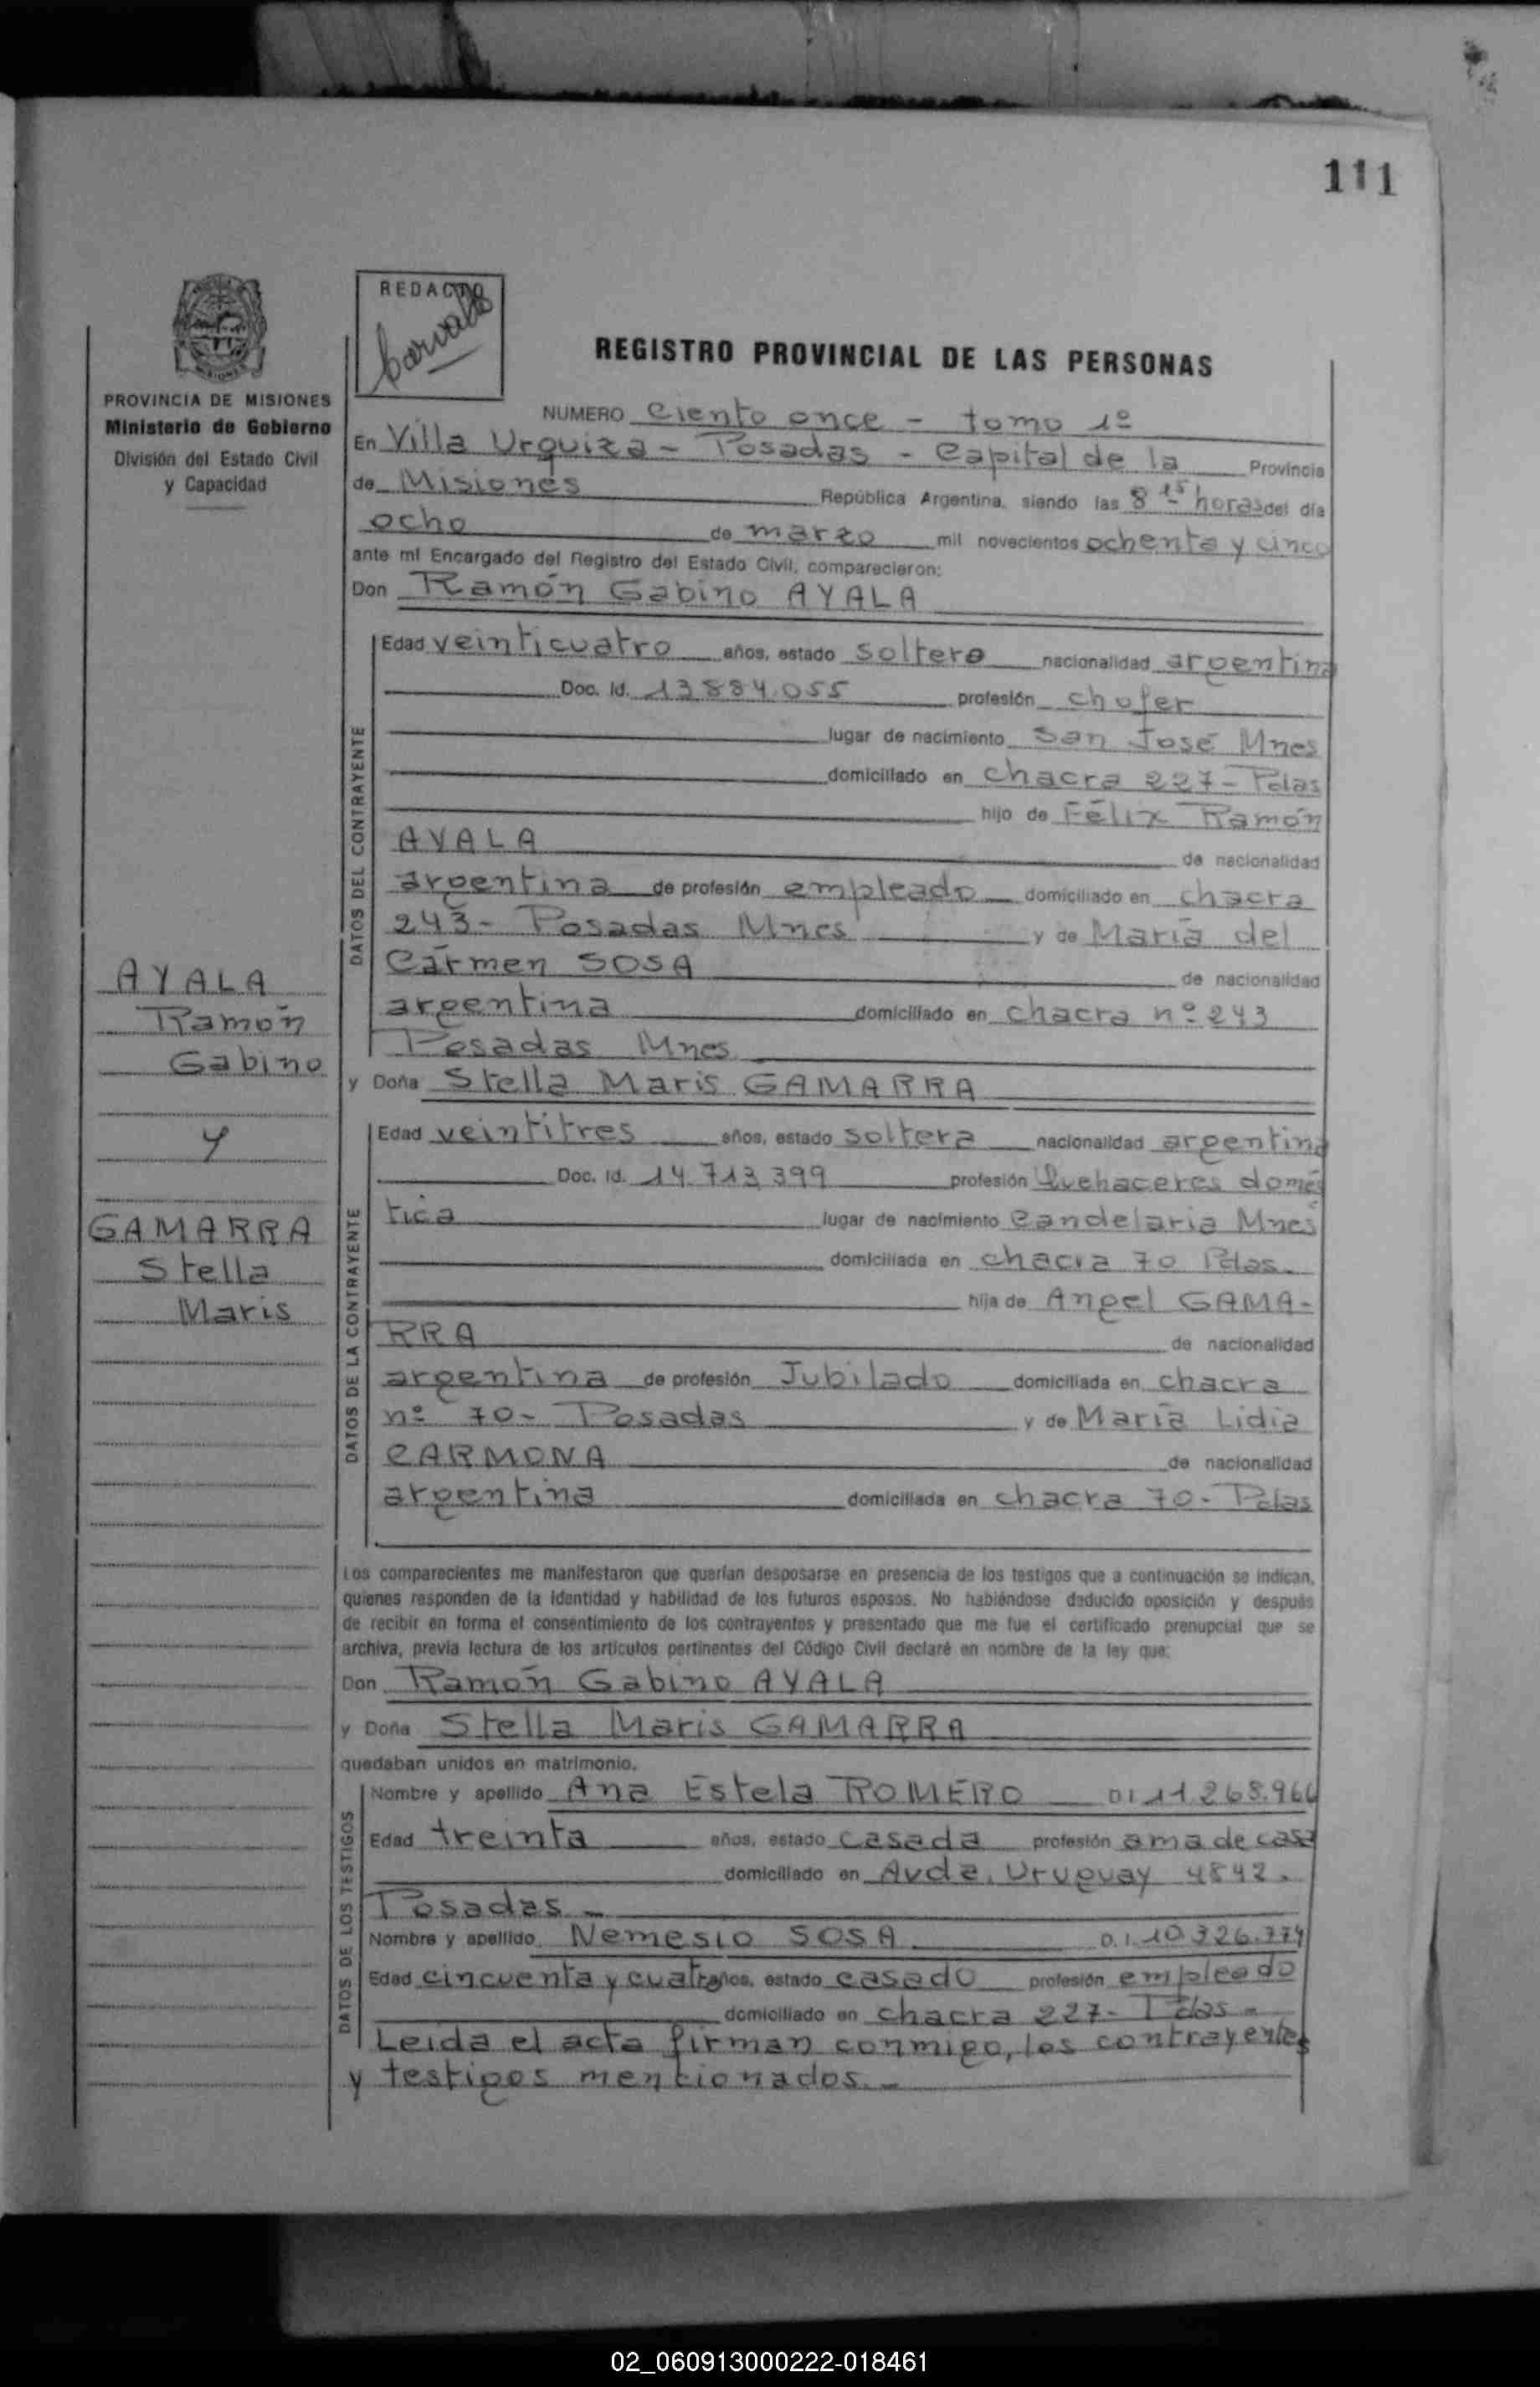 111
REDACTO
Carvallo
MISIONES
PROVINCIA DE MISIONES
Ministerio de Gobierno
División del Estado Civil
y Capacidad
REGISTRO PROVINCIAL DE LAS PERSONAS
NUMERO Ciento once - tomo 1º
En Villa Urquiza - Posadas - Capital de la Provincia
de Misiones República Argentina, siendo las 8 15 horas del día
ocho de marzo mil novecientos ochenta y cinco
ante mí Encargado del Registro del Estado Civil, comparecieron:
Don Ramón Gabino AYALA
DATOS DEL CONTRAYENTE
Edad veinticuatro años, estado soltero nacionalidad argentina
Doc. Id. 13884.055 profesión chofer
lugar de nacimiento San José Mnes
domiciliado en chacra 227 - Pdas
hijo de Félix Ramón
AYALA de nacionalidad
argentina de profesión empleado domiciliado en chacra
243 - Posadas Mnes y de María del
Cármen SOSA de nacionalidad
argentina domiciliado en chacra nº 243
Posadas Mnes
y Doña Stella Maris GAMARRA
AYALA
Ramón
Gabino
y
GAMARRA
Stella
Maris
DATOS DE LA CONTRAYENTE
Edad veintitres años, estado soltera nacionalidad argentina
Doc. Id. 14.713.399 profesión Quehaceres domés
tica lugar de nacimiento Candelaria Mnes
domiciliada en chacra 70 Pdas.
hija de Angel GAMA-
RRA de nacionalidad
argentina de profesión Jubilado domiciliada en chacra
nº 70 - Posadas y de María Lidia
CARMONA de nacionalidad
argentina domiciliada en chacra 70 - Pdas
Los comparecientes me manifestaron que querían desposarse en presencia de los testigos que a continuación se indican,
quienes responden de la identidad y habilidad de los futuros esposos. No habiéndose deducido oposición y después
de recibir en forma el consentimiento de los contrayentes y presentado que me fue el certificado prenupcial que se
archiva, previa lectura de los artículos pertinentes del Código Civil declaré en nombre de la ley que:
Don Ramón Gabino AYALA
y Doña Stella Maris GAMARRA
quedaban unidos en matrimonio.
DATOS DE LOS TESTIGOS
Nombre y apellido Ana Estela ROMERO DI 11.268.964
Edad treinta años, estado casada profesión ama de casa
domiciliado en Avda. Uruguay 4842.
Posadas -
Nombre y apellido Nemesio SOSA D.I. 10.326.774
Edad cincuenta y cuatro años, estado casado profesión empleado
domiciliado en chacra 227 - Pdas -
Leida el acta firman conmigo, los contrayentes
y testigos mencionados. -
02_060913000222-018461